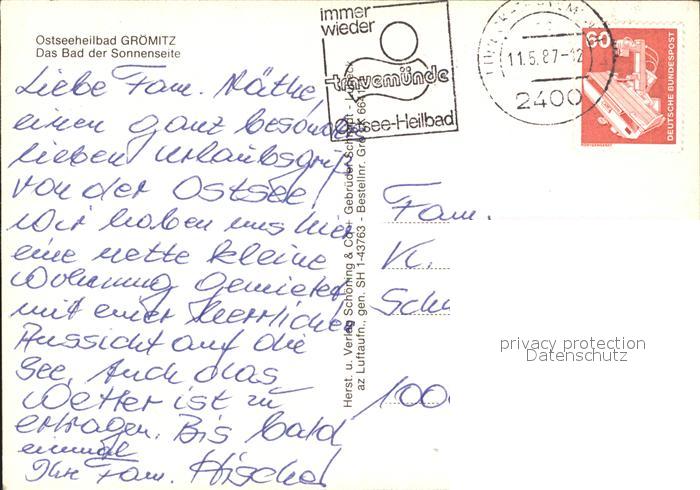 Ostseeheilbad GRÖMITZ
Das Bad der Sonnenseite
immer
wieder
travemünde
Ostsee-Heilbad
11.5.87-12
2400
60
DEUTSCHE BUNDESPOST
RÖNTGENGERÄT
Liebe Fam. Näthe,
einen ganz besonders
lieben Urlaubsgruß
von der Ostsee!
Wir haben uns hier
eine nette kleine
Wohnung gemietet
mit einer herrlichen
Aussicht auf die
See. Auch das
Wetter ist zu
ertragen. Bis bald
einmal
Ihre Fam.
Herst. u. Verlag Schöning & Co + Gebrüder Schmidt
az Luftaufn., gen. SH 1-43763 - Bestellnr. Grö
Fam.
Kl.
Sch
100
privacy protection
Datenschutz